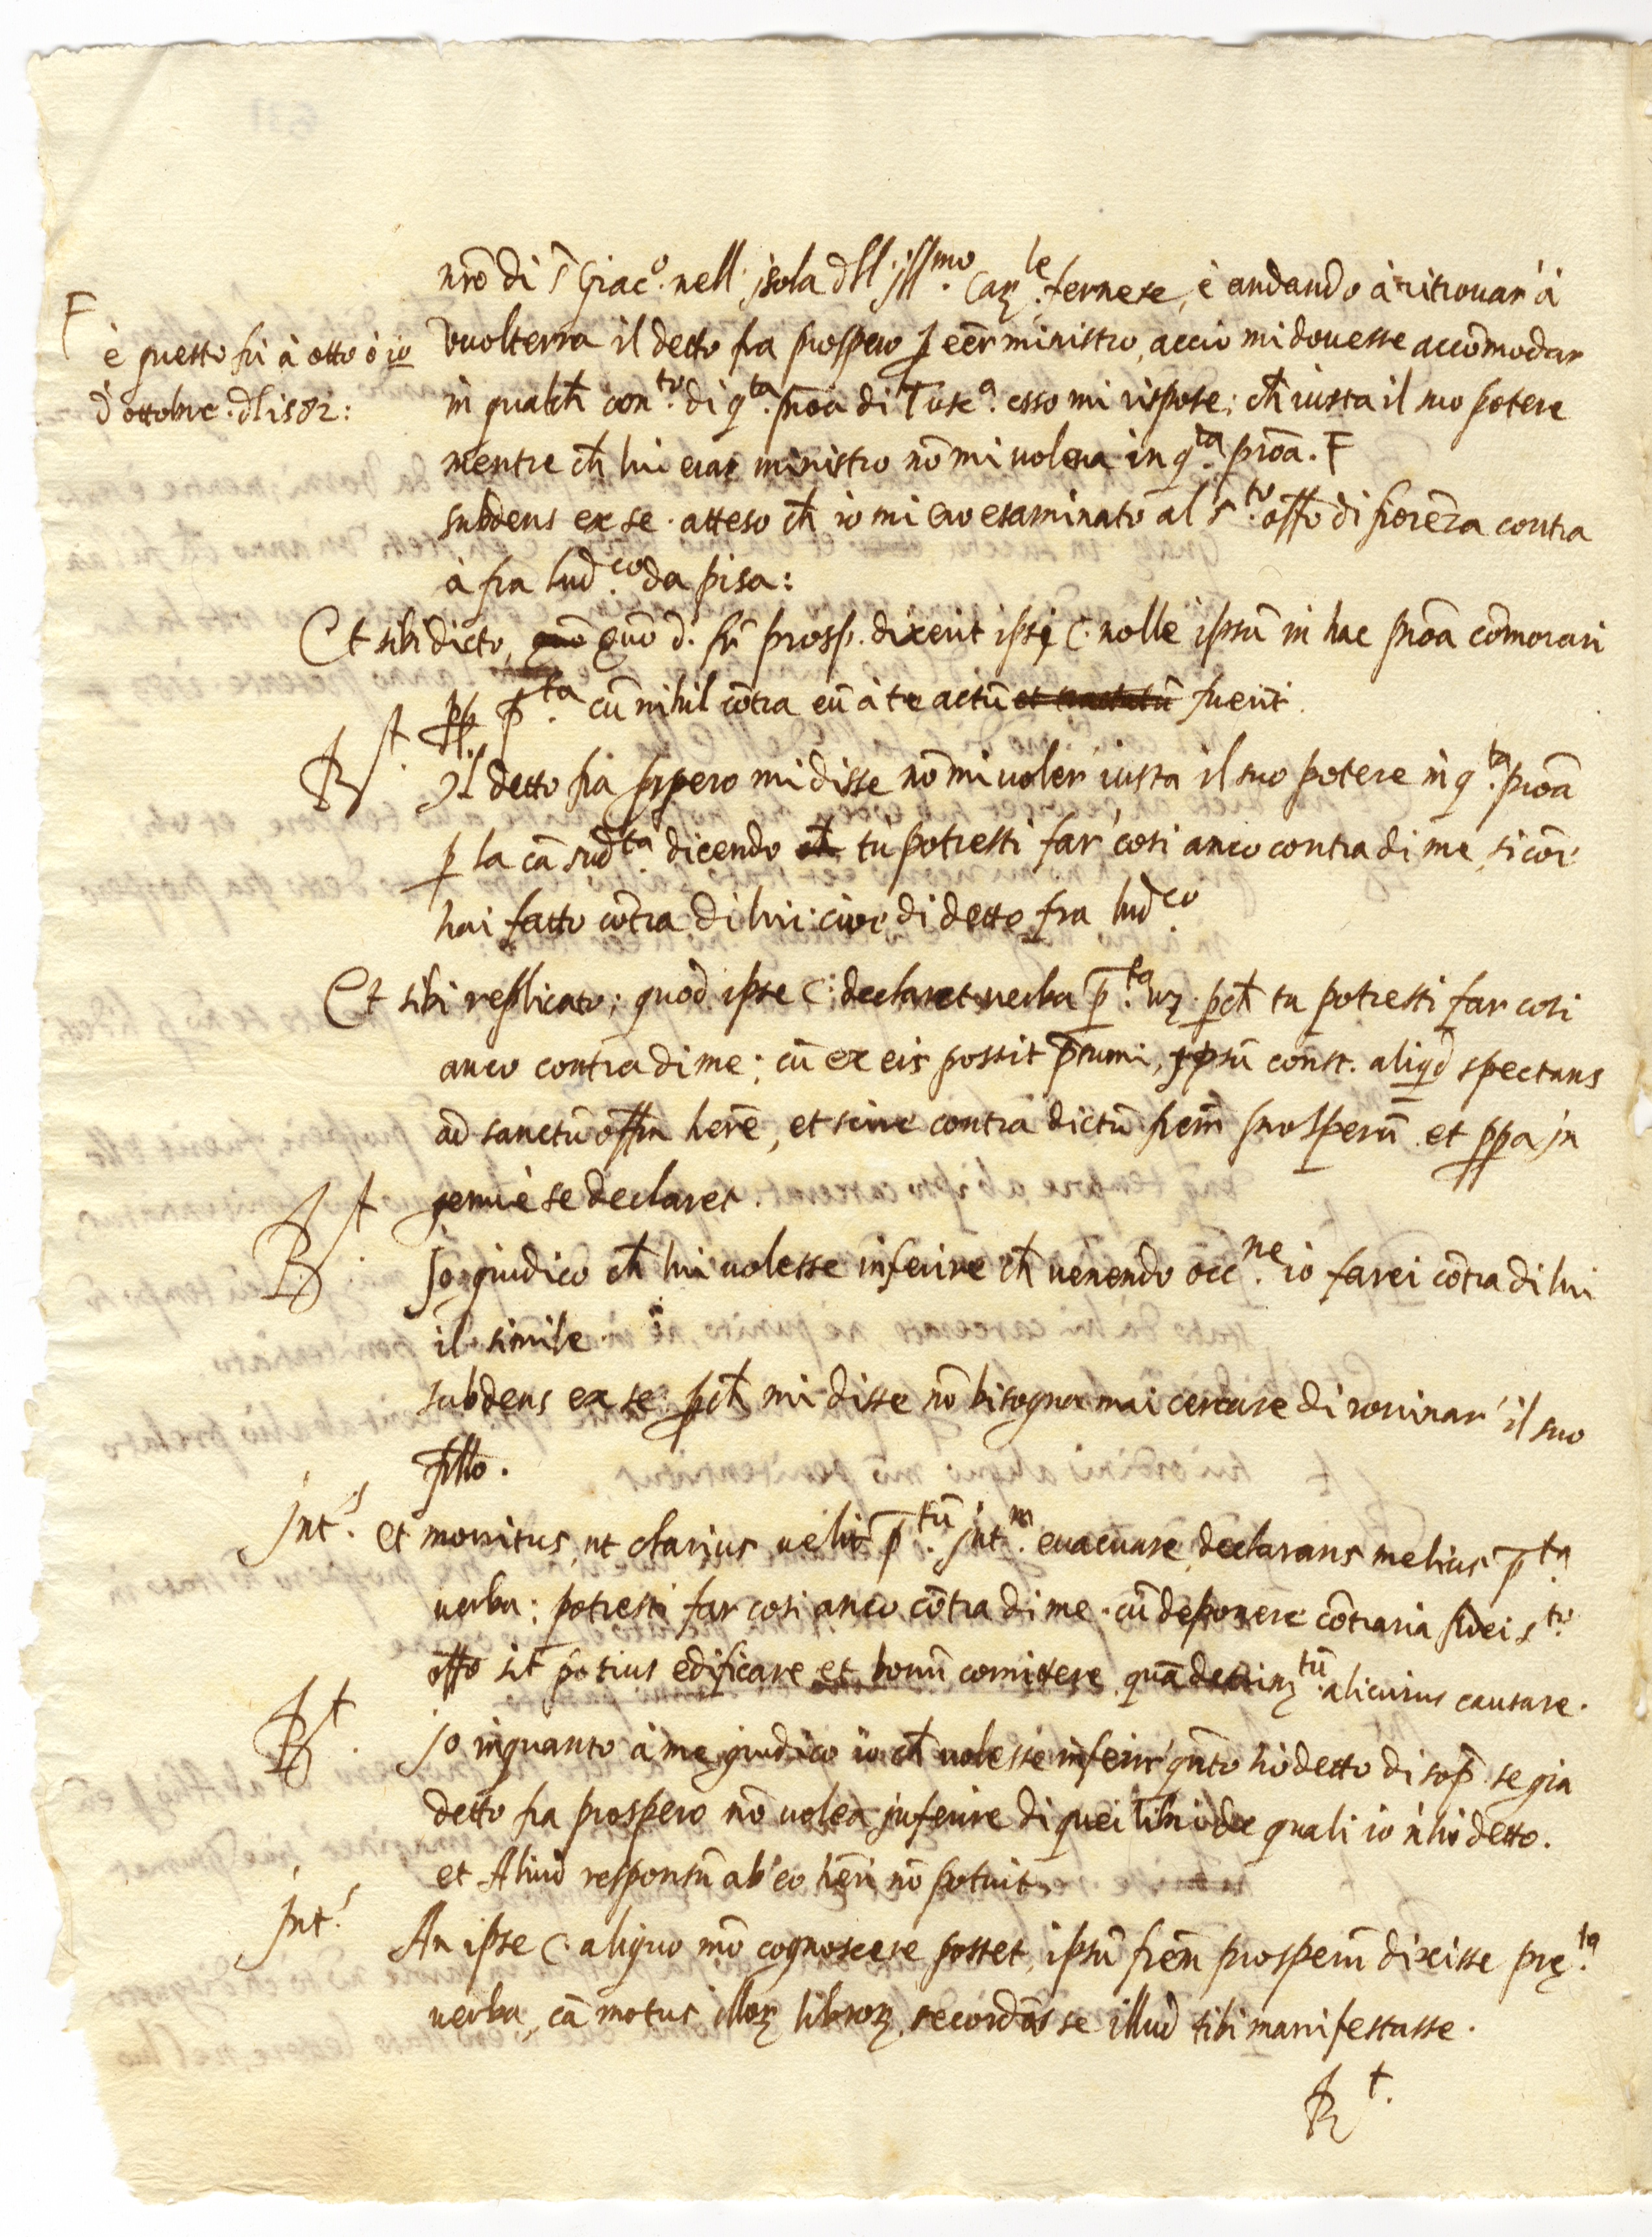 nrõ di S. Giac.º nell'isola dll' Jll.mo Car.le fernese, è andando à ritrouar' à
F
è questo fù à otto ò io
d'ottobre. dl 1582:
Vuolterra il detto fra prospero p eer ministro, accio mi douesse accõmodar
in qualch con.to di q.ta proã di Tosc.ª esso mi rispose; ch iusta il suo potere
mentre ch lui erar ministro nõ mi voleua in q.ta proã. F
subdens ex se. atteso ch io mi ero esaminato al s.to offo di fiorẽza contra
à fra lud.co da pisa:
Et sibi dicto, quõ d. fr prosp. dixerit ipsi C. nolle ipsũ in hac proã cõmorari
pp p.ta cũ nihil cõtra eũ à te actũ et tractatũ fuerit.
R.t Il detto fra prpero mi disse nõ mi voler' iusta il suo potere in q.ta proã
p la cã sud.ta dicendo ch tù potresti far' cosi anco contra di me, sicõe
hai fatto cõtra di lui: cioè di detto fra lud.co
Et sibi replicato; quod ipse C. declaret uerba p.ta uz. pch tu potresti far cosi
anco contra di me; cũ ex eis possit p̃sumi, ipsũ const. aliqd spectans
ad sanctũ offm herẽ, et scire contra dictũ frem prosperũ et ppa in
genuè se declaret.
R.t Jo giudico ch lui uolesse inferire ch uenendo occ.ne io farei cõtra di lui
il simile.
subdens ex se: pch mi disse nõ bisogna mai cercare di rouinar' il suo
fillo.
Int.s et monitus, ut clarius uelit p.tũ int.m euacuare, declarans melius p.ta
uerba: potresti far cosi anco cõtra di me. cũ deponere cõtraria fidei s.to
offo sit potius edificare et bonũ comittere quã detrim.tũ alicuius causare.
R.t Jo inquanto à me giudico io ch uolesse inferir' qnto hò detto di sop̃. se gia
detto fra prospero nõ uolea inferire di quei libri de quali io n'hò detto.
et Aliud responsũ ab eo heri nõ potuit.
Int.s An ipse C. aliquo mõ cognoscere posset, ipsũ frem prosperũ dixisse prę.ta
uerba, cã motus illorz librorz. recordãs se illud sibi manifestasse.
R.t